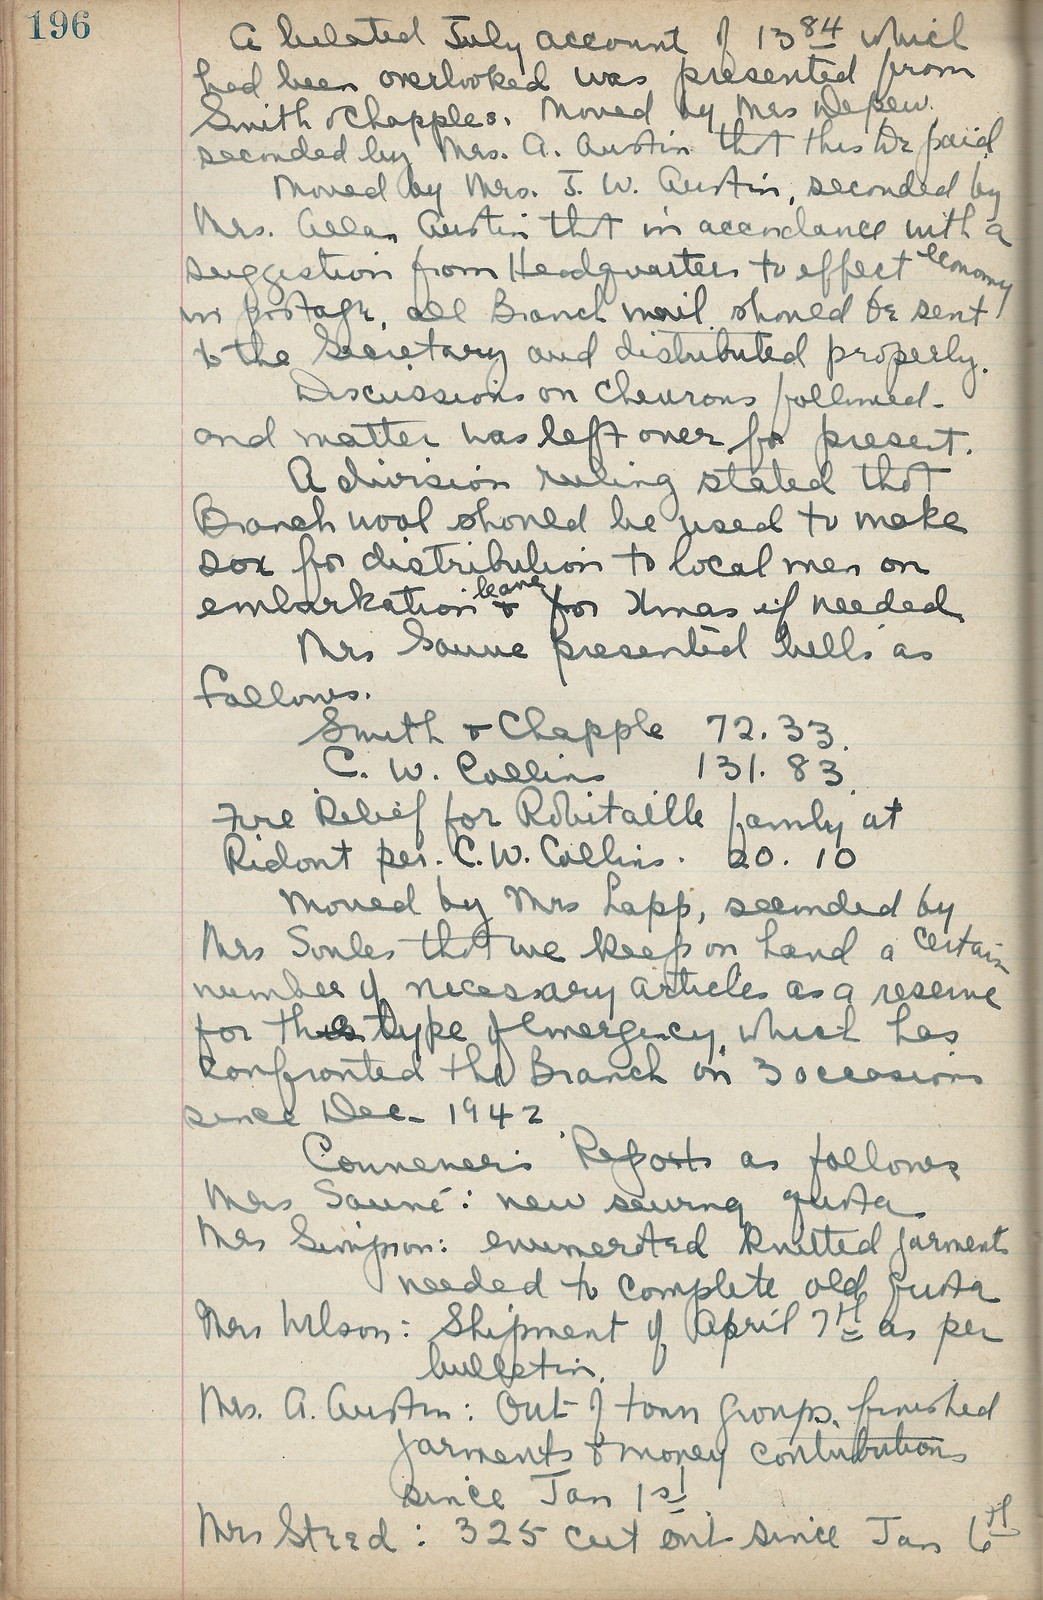 196
A belated July account of 13 84 which
had been overlooked was presented from
Smith & Chapples. Moved by Mrs Depew,
seconded by Mrs. A. Austin that this be paid.
Moved by Mrs. J. W. Austin, seconded by
Mrs. Allan Austin that in accordance with a
suggestion from Headquarters to effect economy
in postage, all Branch mail should be sent
to the Secretary and distributed properly.
Discussions on Chevrons followed -
and matter was left over for present.
A division ruling stated that
Branch wool should be used to make
sox for distribution to local men on
embarkation leave & for Xmas if needed
Mrs Sauve presented bills as
follows.
Smith & Chapple 72.33.
C. W. Collins 131.83
Fire Relief for Robitaille family at
Ridout per. C. W. Collins. 20.10
Moved by Mrs Lapp, seconded by
Mrs Soules that we keep on hand a certain
number of necessary articles as a reserve
for this type of emergency, which has
confronted the Branch on 3 occasions
since Dec - 1942.
Convener's Reports as follows
Mrs Sauvé: new sewing quota
Mrs Simpson: enumerated knitted garments
needed to complete old quota
Mrs Wilson: Shipment of April 7th as per
bulletin.
Mrs. A. Austin: Out of town groups, finished
garments & money contributions
since Jan 1st
Mrs Steed: 325 cut out since Jan 6th